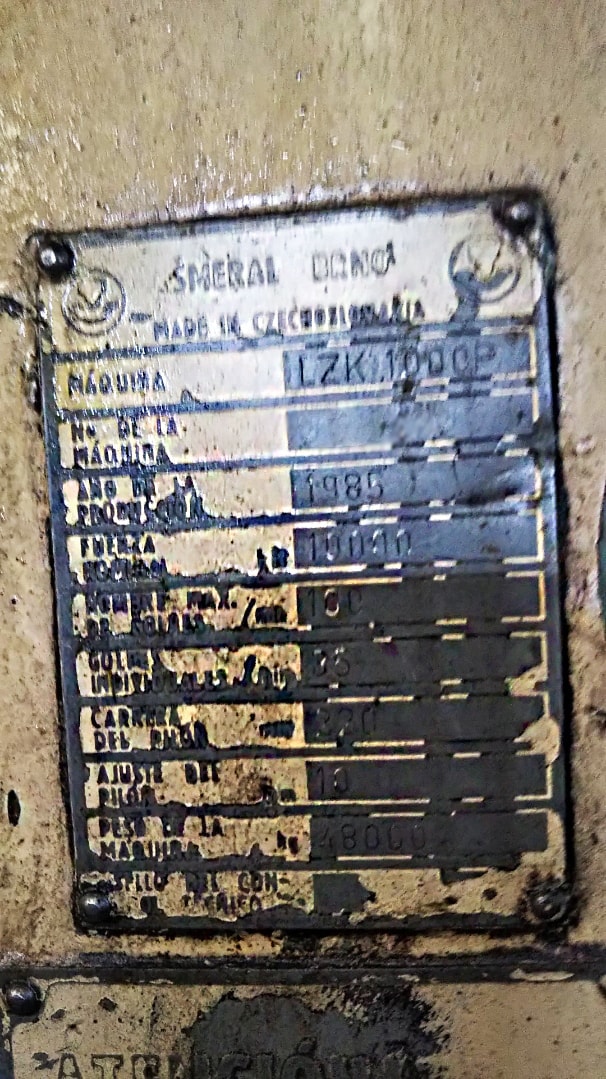 ŠMERAL BRNO
MADE IN CZECHOSLOVAKIA
MÁQUINA LZK 1000P
No DE LA
MÁQUINA
AÑO DE LA 1985
PRODUCCIÓN
FUERZA kN 10000
NOMINAL
NÚMERO MAX. 100
DE GOLPES /min
GOLPES 35
INDIVIDUALES /min
CARRERA mm 220
DEL PILÓN
AJUSTE DEL 10
PILÓN mm
PESO DE LA kg 48000
MÁQUINA
SELLO DEL CON-
TÉCNICO
ATENCIÓN